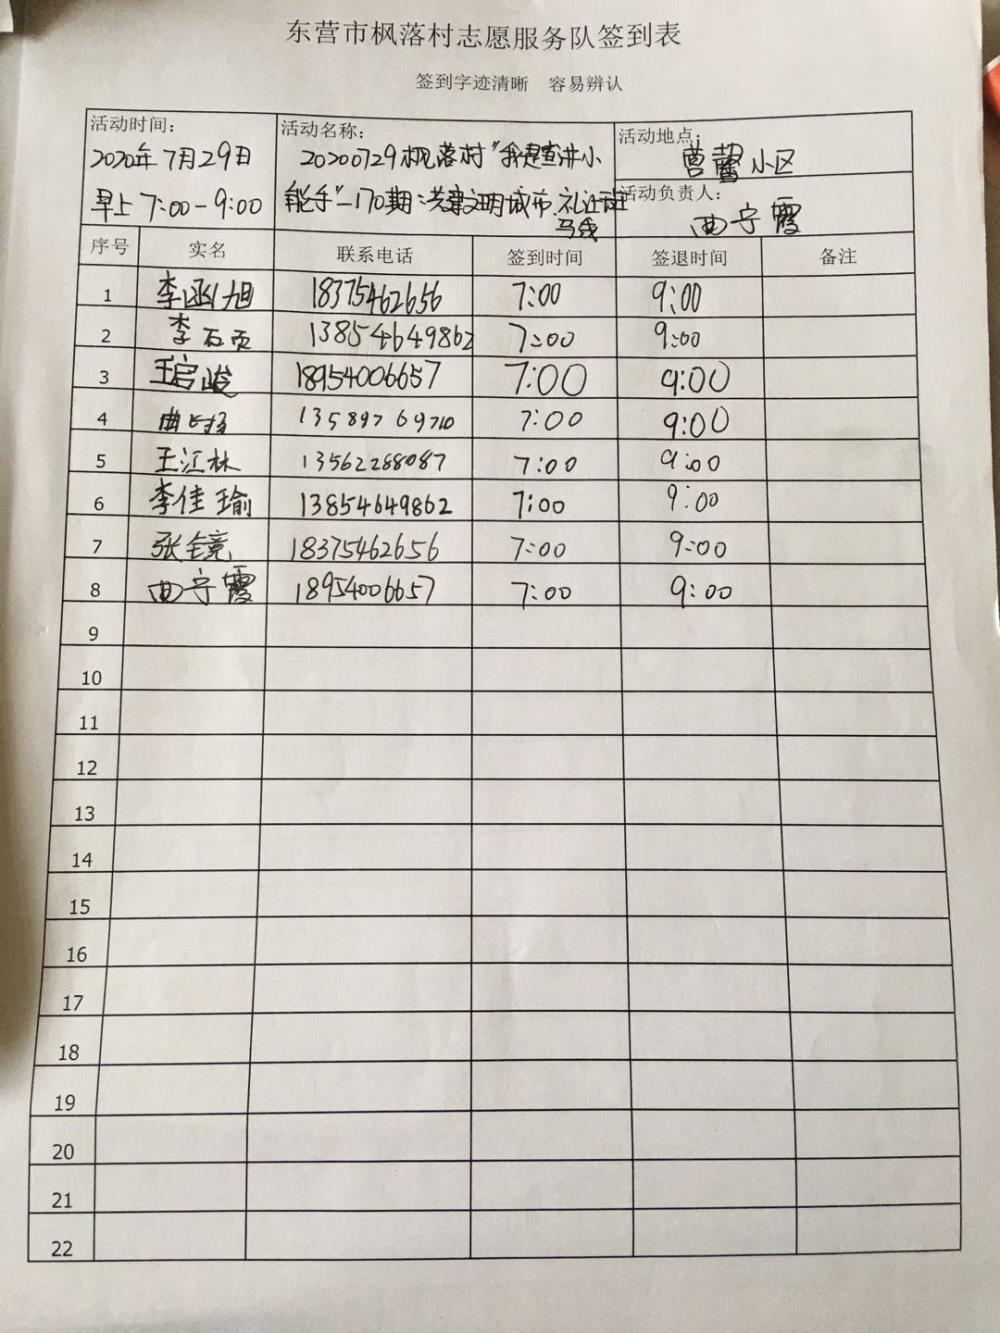 东营市枫落村志愿服务队签到表
签到字迹清晰 容易辨认
活动时间：
2020年7月29日
早上 7:00-9:00
活动名称：
20200729枫落村“我是宣讲小
能手”-170期:共建文明城市.礼让斑
马线
活动地点：
小区
活动负责人：
曲守霞
序号 实名 联系电话 签到时间 签退时间 备注
1 李函旭 18375462656 7:00 9:00
2 李石页 13854649862 7:00 9:00
3 王启峻 18954006657 7:00 9:00
4 曲 13589769710 7:00 9:00
5 王江林 13562288087 7:00 9:00
6 李佳瑜 13854649862 7:00 9:00
7 张镜 18375462656 7:00 9:00
8 曲守霞 18954006657 7:00 9:00
9
10
11
12
13
14
15
16
17
18
19
20
21
22